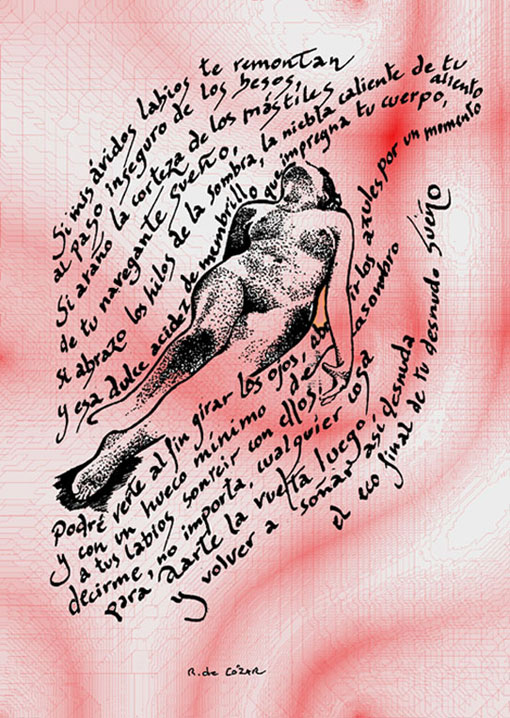 Si mis ávidos labios te remontan
al paso inseguro de los besos,
Si araño la corteza de los mástiles
de tu navegante sueño,
si abrazo los hilos de la sombra, la niebla caliente de tu aliento
y esa dulce acidez de membrillo que impregna tu cuerpo,
podré verte al fin girar los ojos, abrir los azules por un momento
y con un hueco mínimo de asombro
a tus labios sonreír con ellos,
decirme, no importa, cualquier cosa
para darte la vuelta luego
y volver a soñar así desnuda
el eco final de tu desnudo sueño
R. de CÓZAR